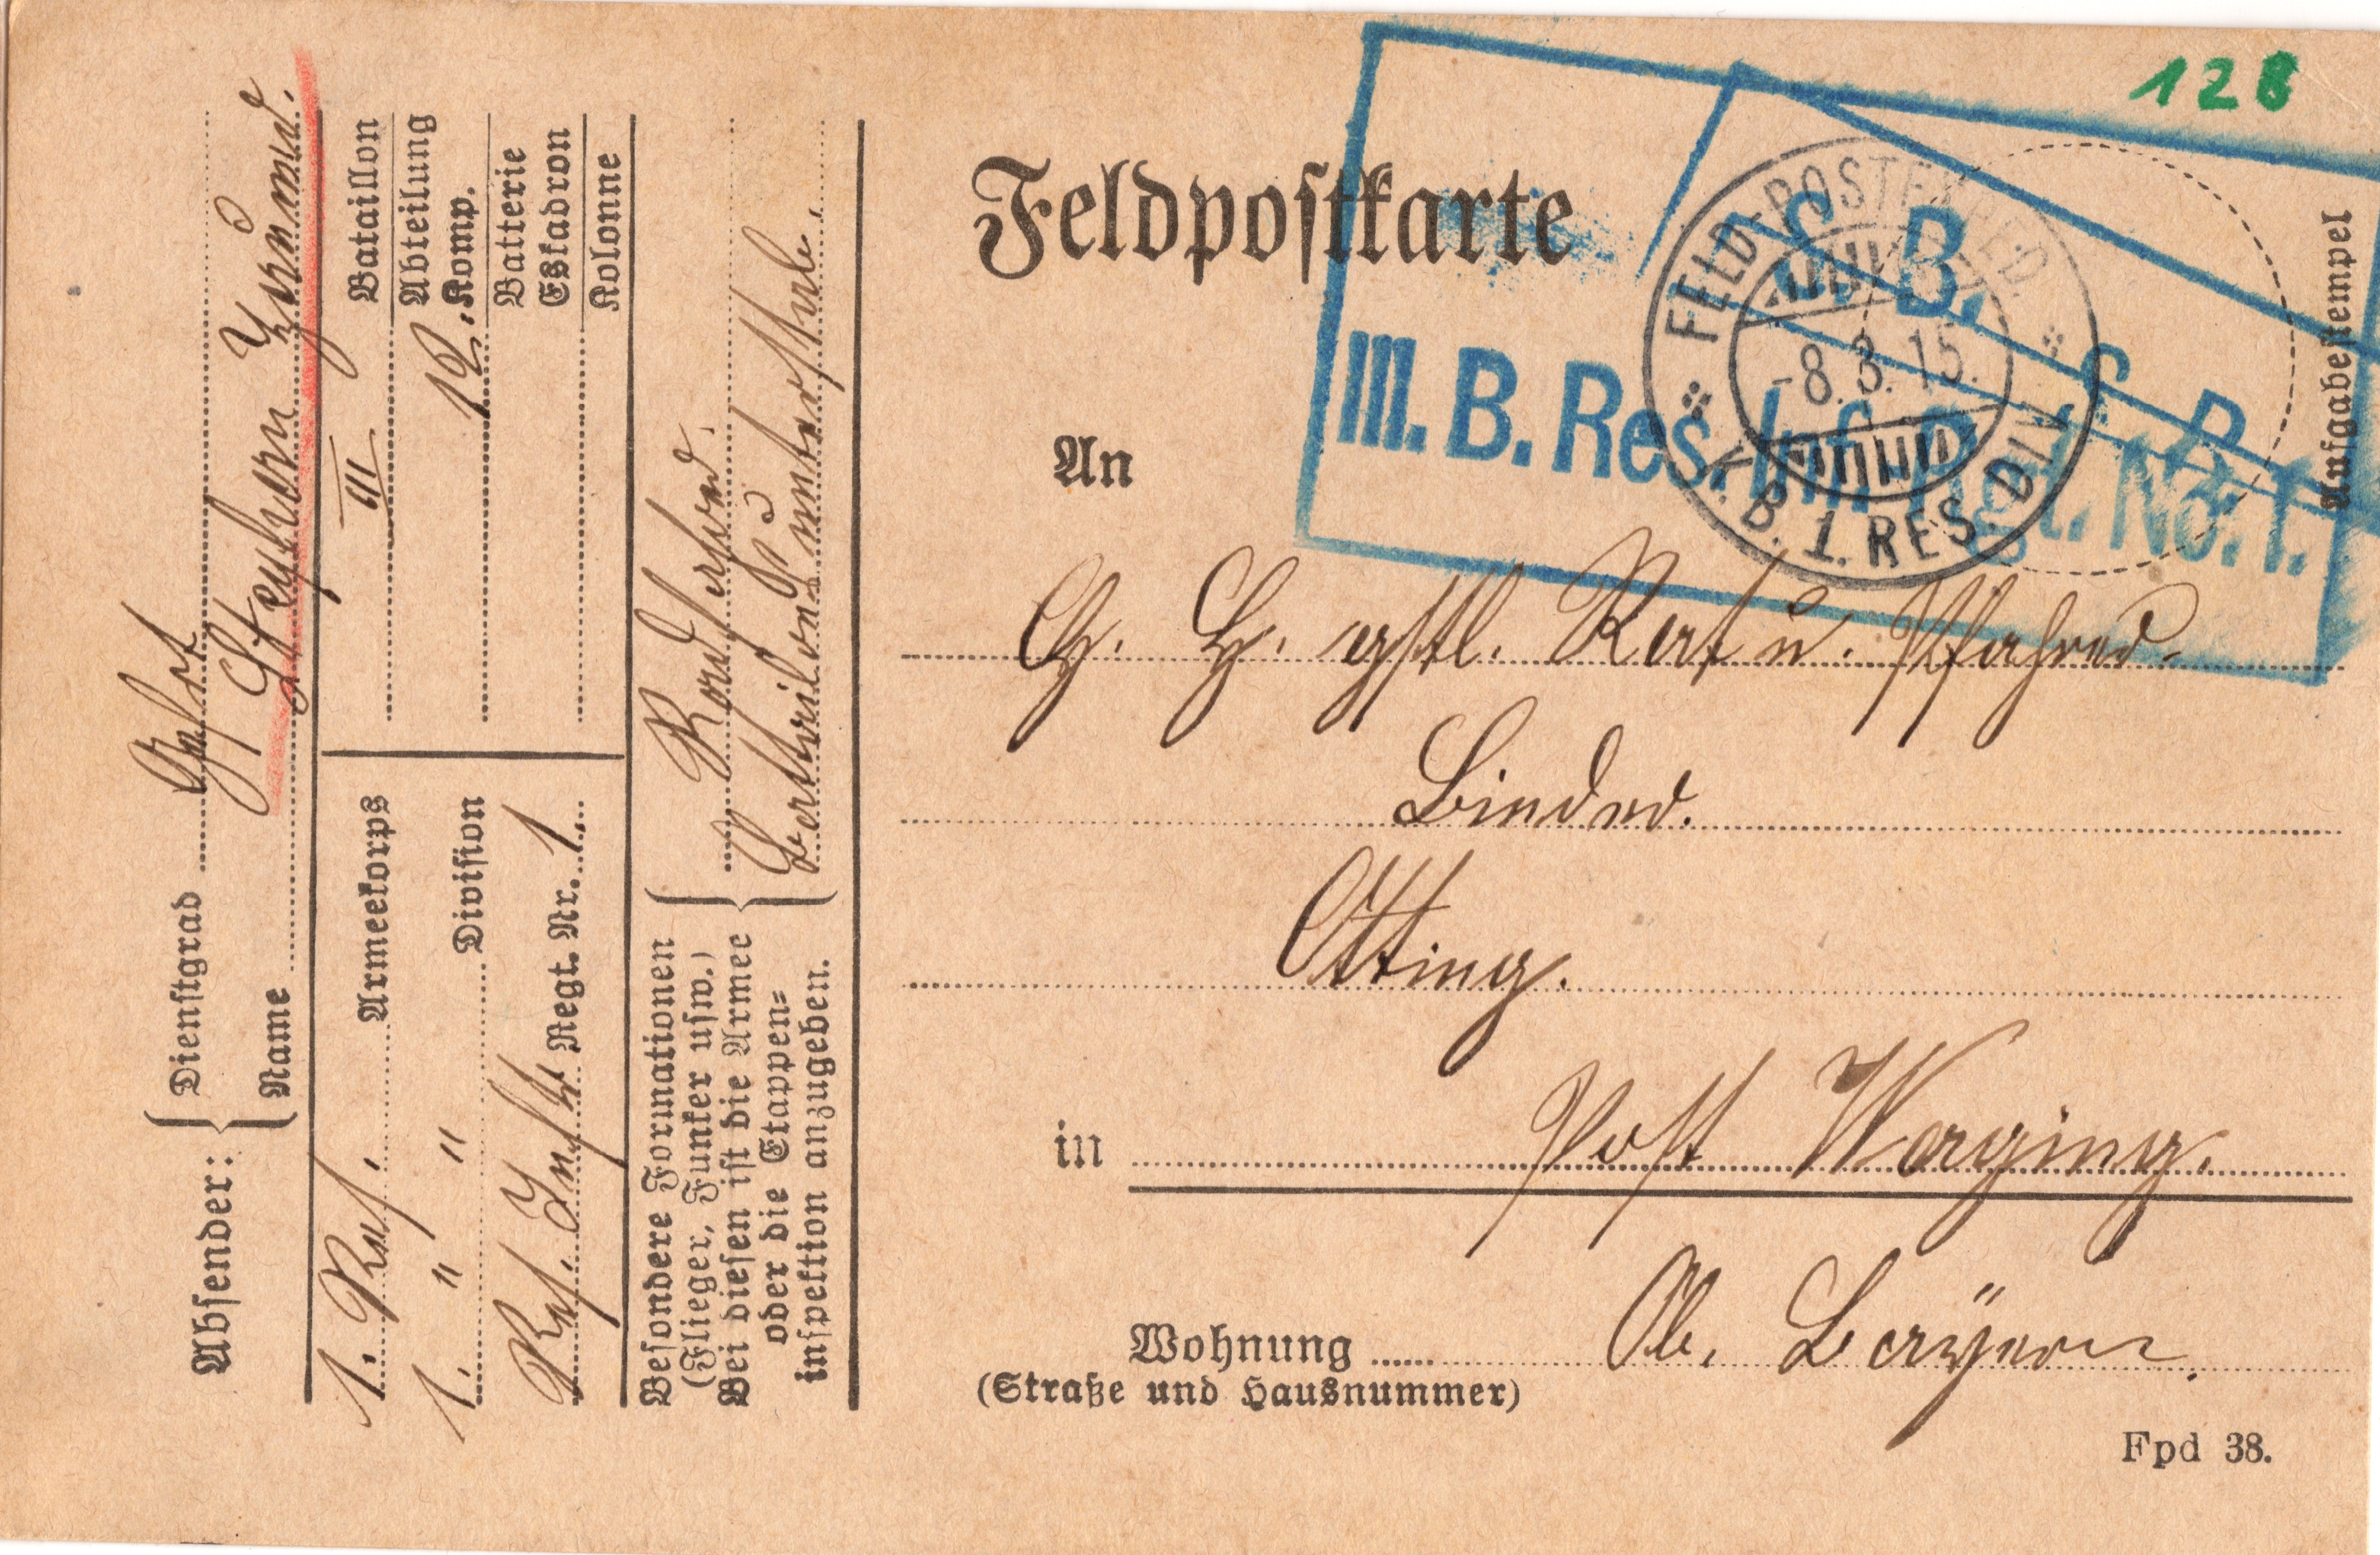 128
Feldpostkarte
S. B.
S. B.
III. B. Res. Inf. Rgt. No. 1.
FELD-POSTEXPED.
-8.3.15.
K.B. 1. RES. DIV.
Aufgabestempel
An
H. H. gstl. Rat u. Pfarrer
Binder.
Otting.
in Post Waging.
Wohnung Ob. Bayern.
(Straße und Hausnummer)
Fpd 38.
Absender:
Dienstgrad Gefrt
Name Stephan
1. Res. Armeekorps
1. " " Division
Res. Inft. Regt. Nr. 1.
III Bataillon
Abteilung
12. Komp.
Batterie
Eskadron
Kolonne
Besondere Formationen
(Flieger, Funker usw.)
Bei diesen ist die Armee
oder die Etappen-
inspektion anzugeben.